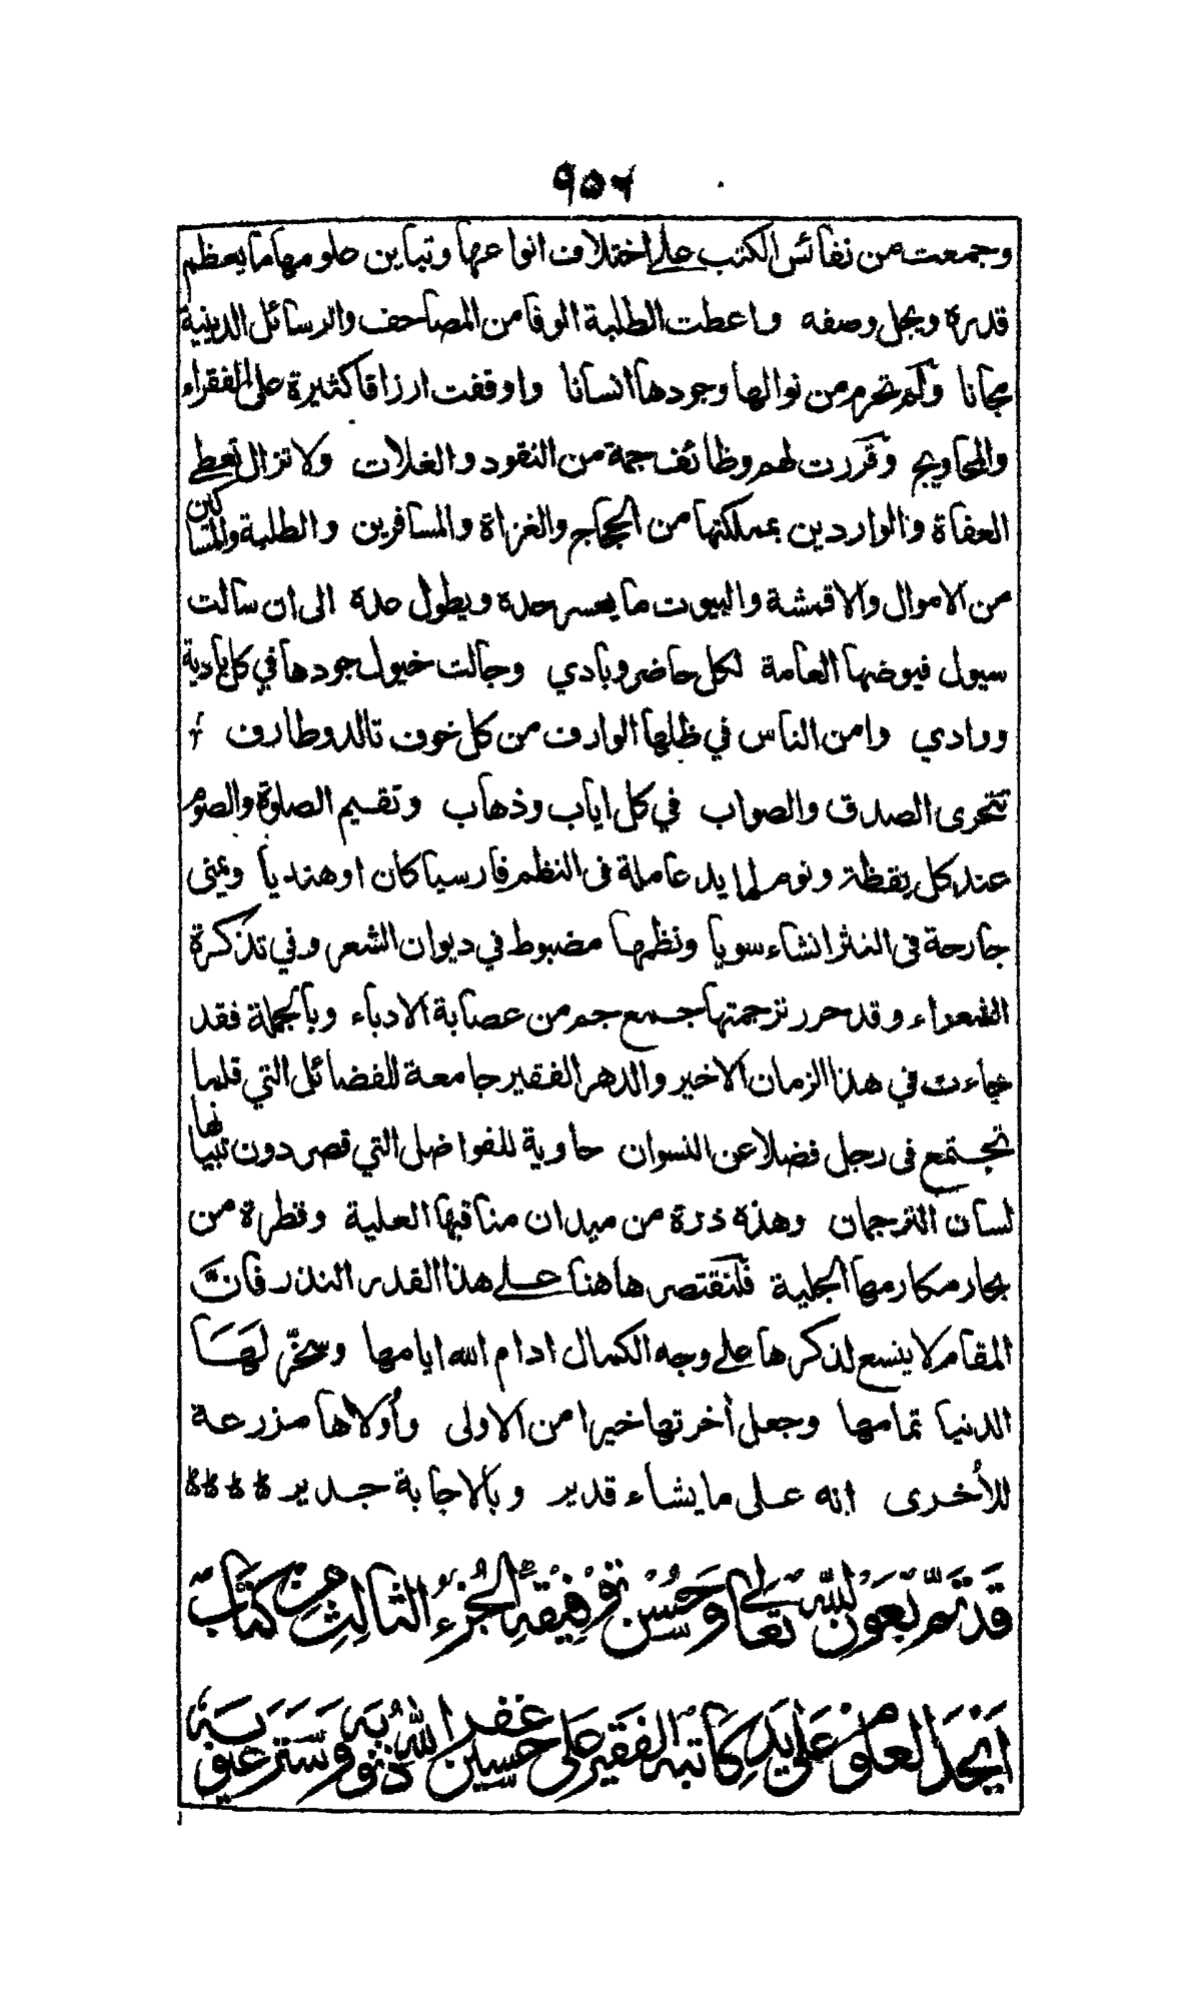 ٩٥٦
وجمعت من نفائس الكتب على اختلاف انواعها وتباين علومها ما يعظم
قدره ويجل وصفه واعطت الطلبة الوفا من المصاحف والرسائل الدينية
مجانا ولم تحرم من نوالها وجودها انسانا واوقفت ارزاقا كثيرة على الفقراء
والمحاويج وقررت لهم وظائف جمة من النقود والغلات ولا تزال تعطي
العفاة والواردين بمملكتها من الحجاج والغزاة والمسافرين والطلبة والمساكين
من الاموال والاقمشة والبيوت ما يعسر حده ويطول عده الى ان سالت
سيول فيوضها العامة لكل حاضر وبادي وجالت خيول جودها في كل بادية
ووادي وامن الناس في ظلها الوارف من كل خوف تالد وطارف
تتحرى الصدق والصواب في كل اياب وذهاب وتقيم الصلوة والصوم
عند كل يقظة ونوم لها يد عاملة فى النظم فارسيا كان او هنديا ويمنى
جارحة فى النثر انشاء سويا ونظمها مضبوط في ديوان الشعر وفي تذكرة
الشعراء وقد حرر ترجمتها جمع جم من عصابة الادباء وبالجملة فقد
جاءت في هذا الزمان الاخير والدهر الفقير جامعة للفضائل التي قلما
تجتمع فى رجل فضلا عن النسوان حاوية للفواضل التي قصر دون تبيانها
لسان الترجمان وهذه ذرة من ميدان مناقبها العلية وقطرة من
بحار مكارمها الجلية فلنقتصر هاهنا على هذا القدر النذر فانّ
المقام لا يتسع لذكرها على وجه الكمال ادام الله ايامها وسخّر لَهَا
الدنيا تمامها وجعل أخرتها خيرا من الاولى وأولاها مزرعة
للأخرى انه على ما يشاء قدير وبالاجابة جدير
قَد تَم بعَون الله تعالى وحُسن توفيقه الجُزء الثالث من كتاب
ابجد العلوم على يد كاتبه الفقير على حسين غفر الله ذنوبه وستر عيوبه